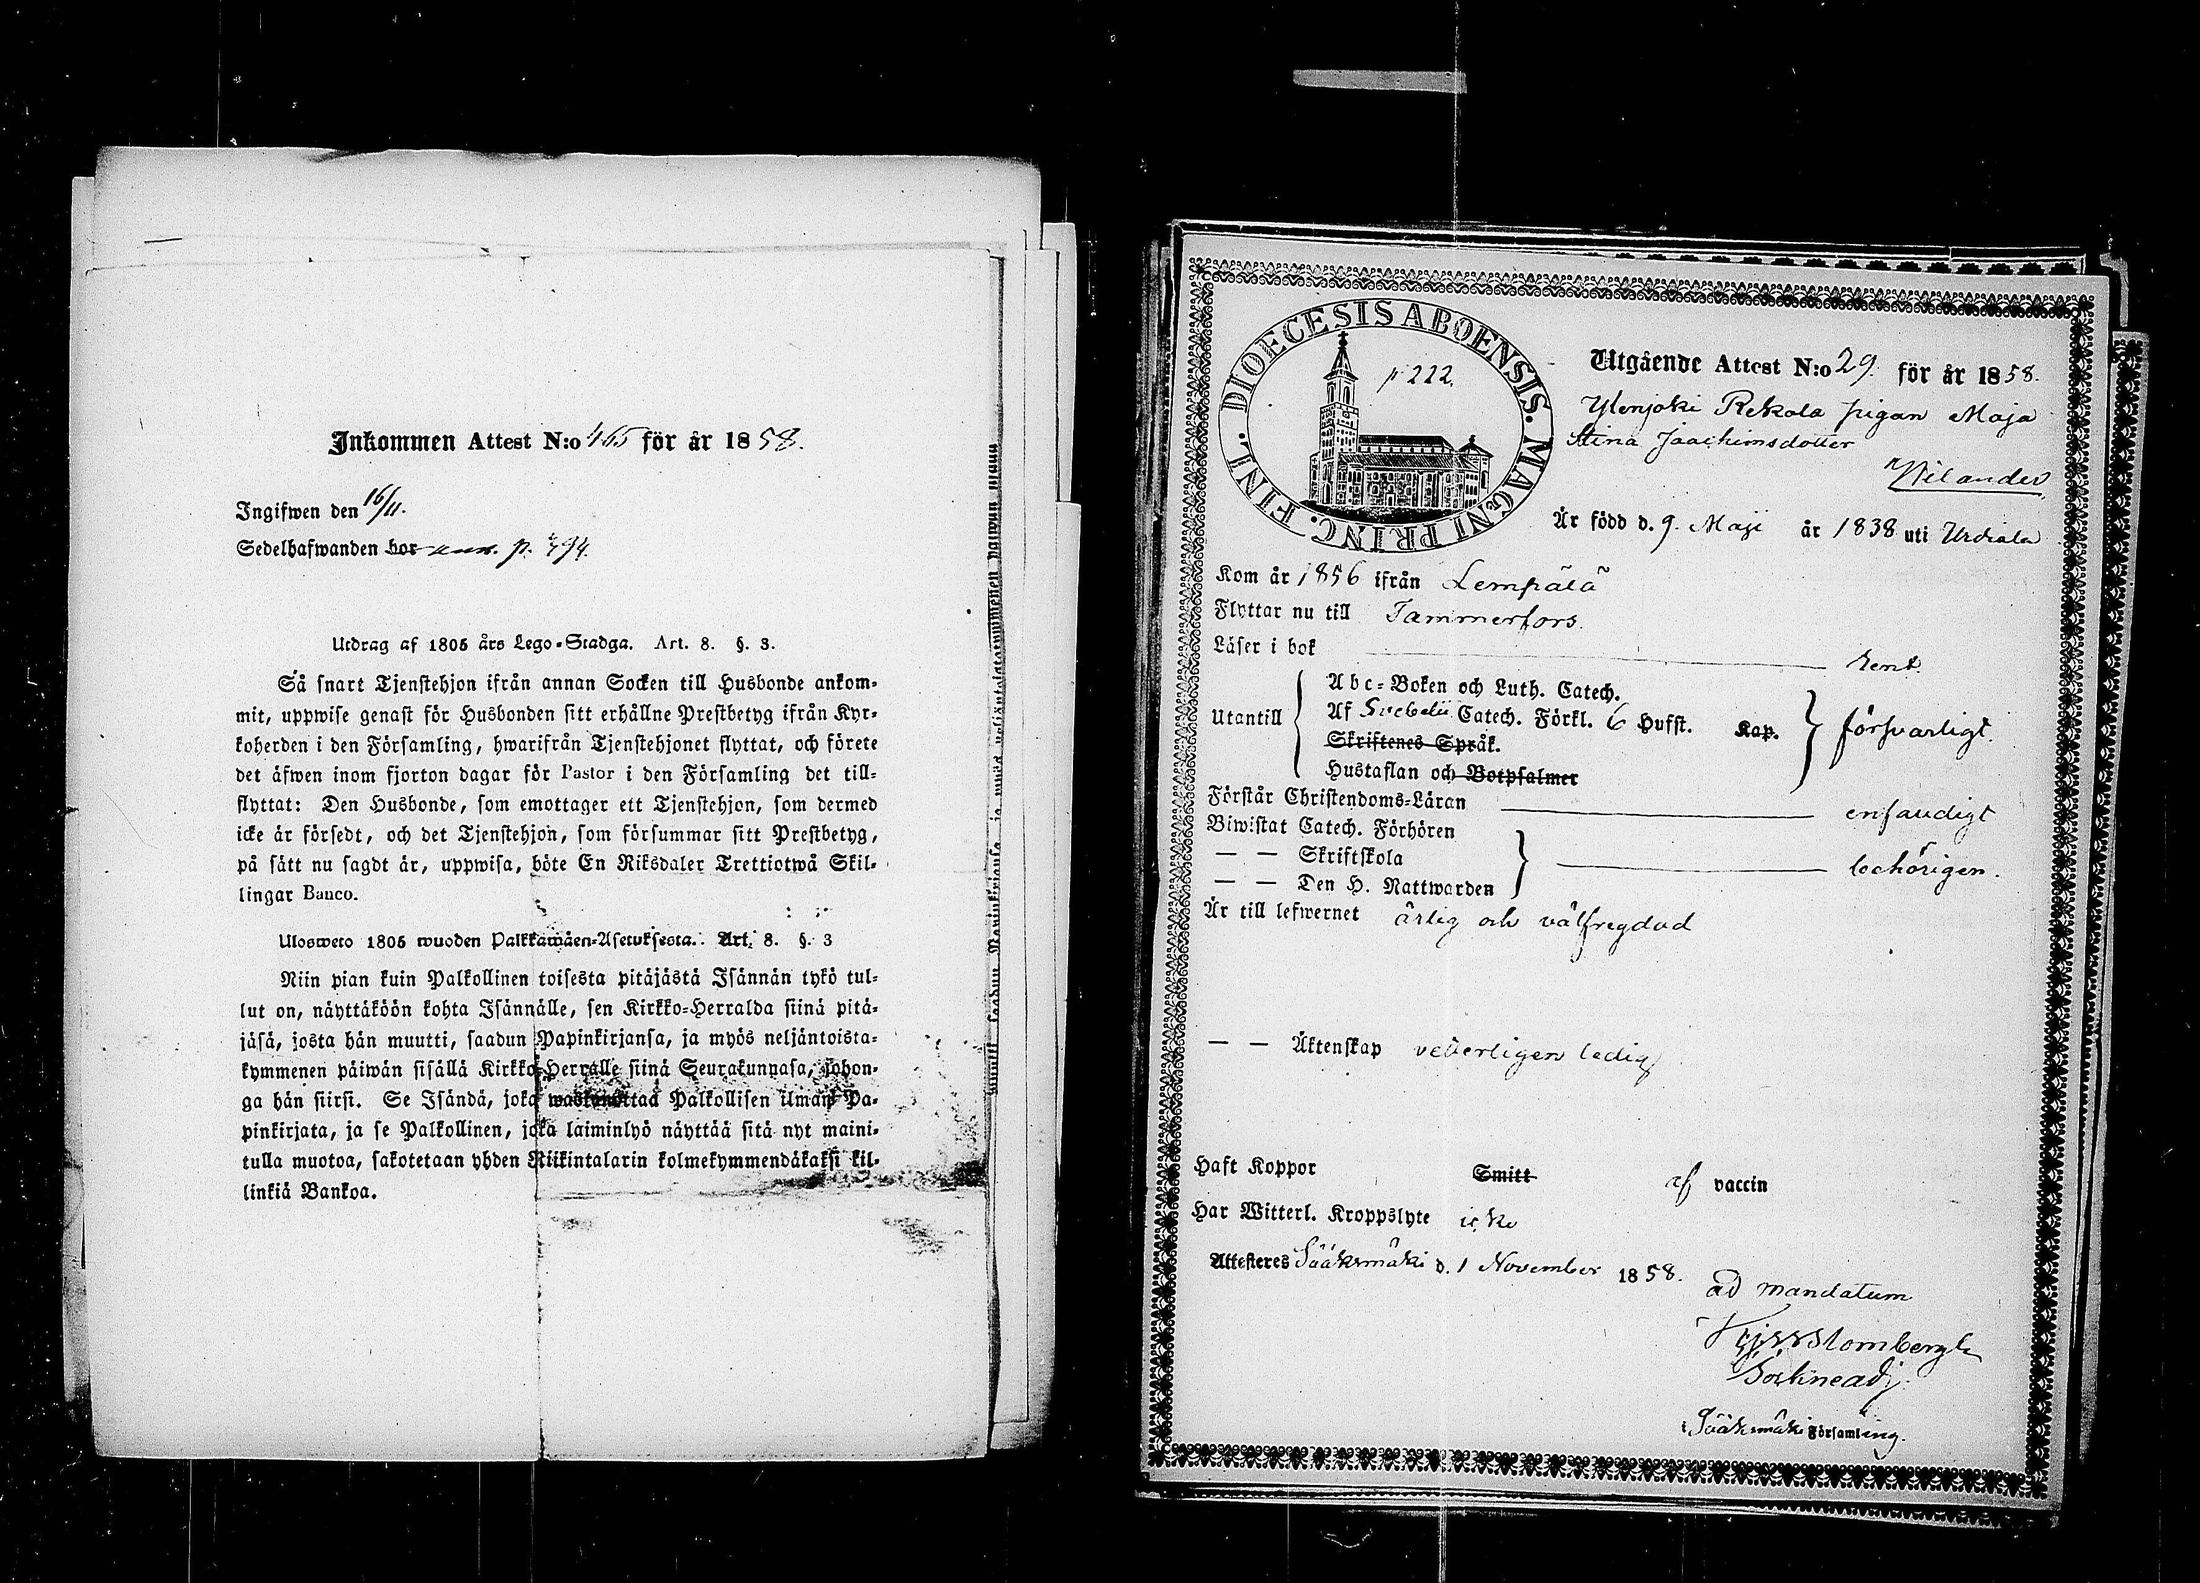 Inkommen Attest N:o 465 för år 1858.
Ingifwen den 16/11.
Sedelhafwanden bor p. 394.
Utdrag af 1805 års Lego-Stadga. Art. 8. §. 3.
Så snart Tjenstehjon ifrån annan Socken till Husbonde ankom-
mit, uppwise genast för Husbonden sitt erhållne Prestbetyg ifrån Kyr-
koherden i den Församling, hwarifrån Tjenstehjonet flyttat, och förete
det äfwen inom fjorton dagar för Pastor i den Församling det till-
flyttat: Den Husbonde, som emottager ett Tjenstehjon, som dermed
icke är försedt, och det Tjenstehjon, som försummar sitt Prestbetyg,
på sätt nu sagdt är, uppwisa, böte En Riksdaler Trettiotwå Skil-
lingar Banco.
Ulosweto 1805 wuoden Palkkawäen-Asetuksesta. Art. 8. §. 3
Niin pian kuin Palkollinen toisesta pitäjästä Isännän tykö tul-
lut on, näyttäköön kohta Isännälle, sen Kirkko-Herralda siinä pitä-
jäsä, josta hän muutti, saadun Papinkirjansa, ja myös neljäntoista-
kymmenen päiwän sisällä Kirkko-Herralle siinä Seurakunnasa, johon-
ga hän siirsi. Se Isändä, joka wastanottaa Palkollisen ilman Pa-
pinkirjata, ja se Palkollinen, joka laiminlyö näyttää sitä nyt maini-
tulla muotoa, sakotetaan yhden Riikintalarin kolmekymmendäkaksi kil-
linkiä Bankoa.
DIOECESIS ABOENSIS. MAGNI PRINC. FINL.
p 222.
Utgående Attest N:o 29. för år 1858.
Ylenjoki Rekola pigan Maja
Stina Joachimsdotter
Wilander
Är född d. 9. Maji år 1838 uti Urdiala
Kom år 1856 ifrån Lempälä
Flyttar nu till Tammerfors.
Läser i bok rent
Utantill
Abc-Boken och Luth. Catech.
Af Svebelii Catech. Förkl. 6 Hufst. Kap.
Skriftenes Språk.
Hustaflan och Botpsalmer
försvarligt.
Förstår Christendoms-Läran enfaldigt
Biwistat Catech. Förhören
— — Skriftskola
— — Den H. Nattwarden
behörigen.
Är till lefwernet ärlig och välfregdad
— — Äktenskap veterligen ledig
Haft Koppor Smitt af vaccin
Har Witterl. Kroppslyte icke
Attesteres Sääksmäki d. 1 November 1858.
ad mandatum
Sockneadj.
i Sääksmäki Församling.